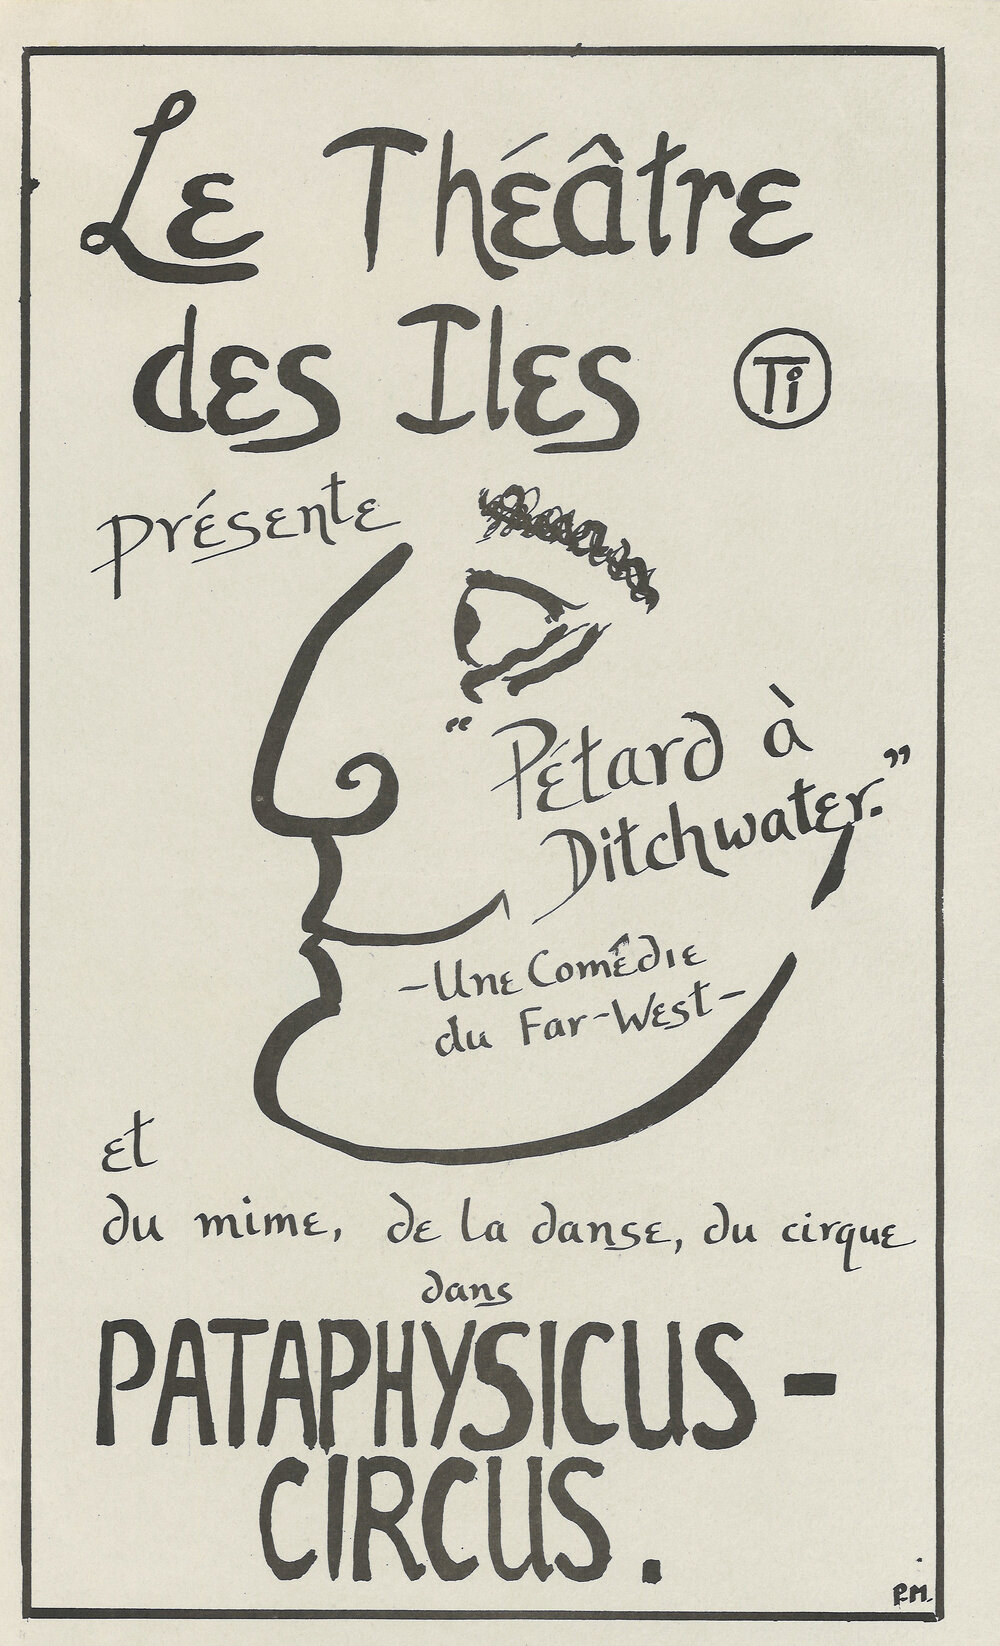 Le Théâtre
des Iles
Ti
présente
“Pétard à
Ditchwater.”
-Une Comêdie
du Far-West-
et
du mime, de la danse, du cirque
dans
PATAPHYSICUS-
CIRCUS.
P.M.